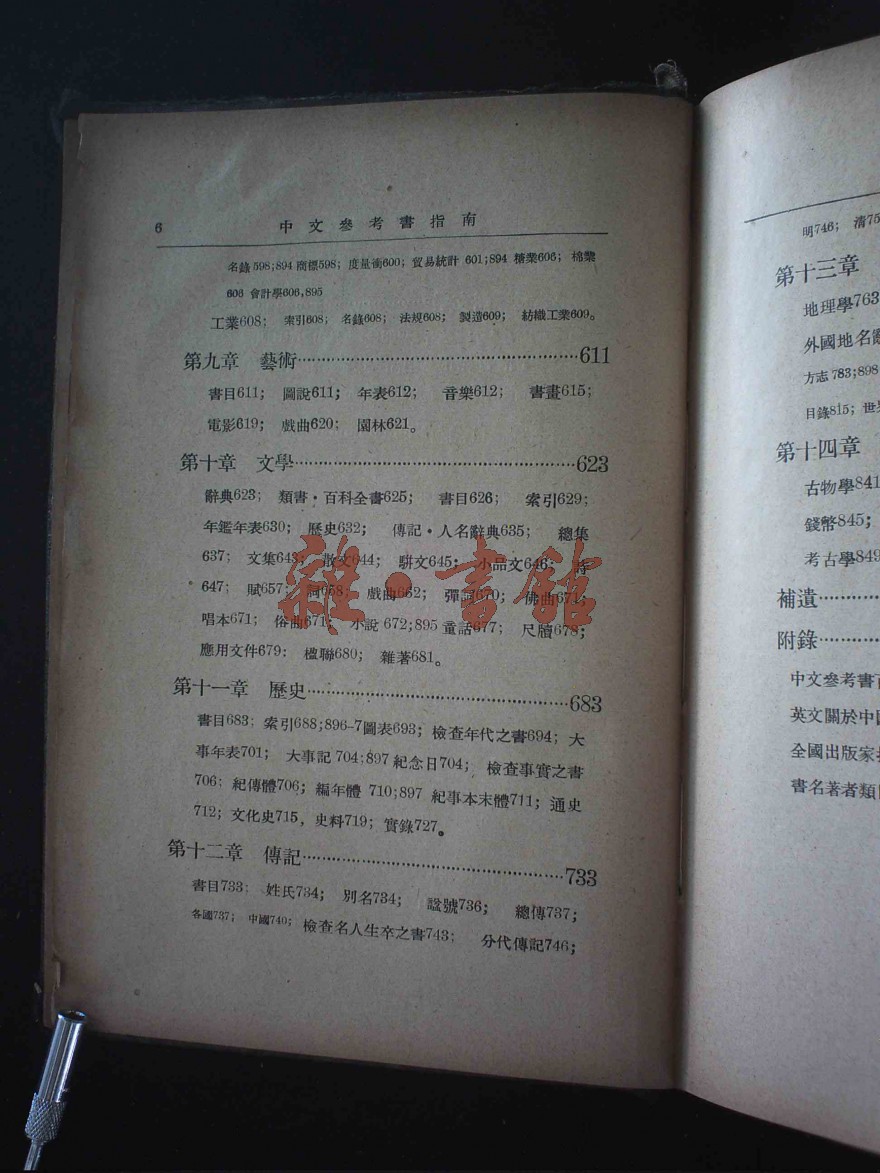 6
中文參考書指南
名錄598;894 商標598; 度量衡600; 貿易統計 601;894 糖業606; 棉業
606 會計學606,895
工業608; 索引608; 名錄608; 法規608; 製造609; 紡織工業609。
第九章 藝術……………………………………611
書目611; 圖說611; 年表612; 音樂612; 書畫615;
電影619; 戲曲620; 園林621。
第十章 文學……………………………………623
辭典623; 類書·百科全書625; 書目626; 索引629;
年鑑年表630; 歷史632; 傳記·人名辭典635; 總集
637; 文集643; 散文644; 駢文645; 小品文646; 詩
647; 賦657; 詞658; 戲曲662; 彈詞670; 佛曲671;
唱本671; 俗曲671; 小說 672;895 童話677; 尺牘678;
應用文件679; 楹聯680; 雜著681。
第十一章 歷史……………………………………683
書目683; 索引688;896-7圖表693; 檢查年代之書694; 大
事年表701; 大事記 704;897 紀念日704; 檢查事實之書
706; 紀傳體706; 編年體 710;897 紀事本末體711; 通史
712; 文化史715, 史料719; 實錄727。
第十二章 傳記……………………………………733
書目733; 姓氏734; 別名734; 諡號736; 總傳737;
各國737; 中國740; 檢查名人生卒之書743; 分代傳記746;
雜·書館
明746; 清75
第十三章
地理學763
外國地名辭
方志 783;898
目錄815; 世界
第十四章
古物學841
錢幣845;
考古學849
補遺……………
附錄……………
中文參考書
英文關於中國
全國出版家
書名著者類